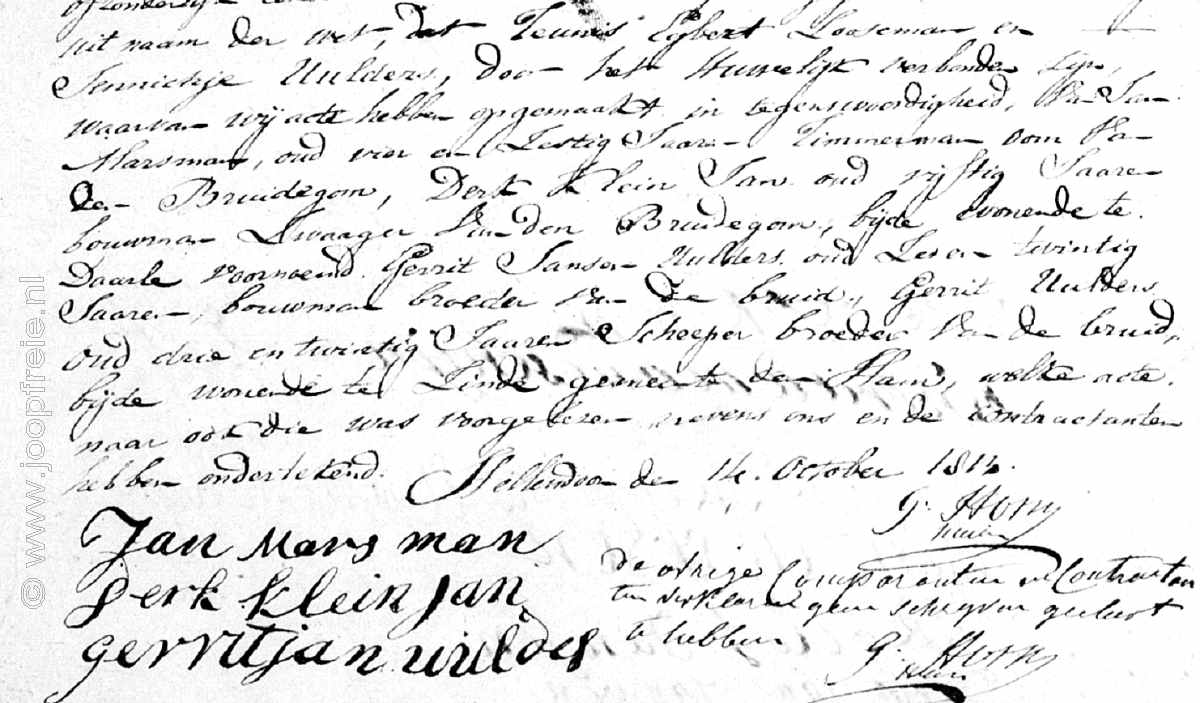 afzonderlijk
uit naam der wet, dat Teunis Egbert Looseman en
Jennichje Uulders, door het Huwelijk verbonden zijn,
waarvan wij acte hebben opgemaakt in tegenswoordigheid, van Jan
Marsman, oud vier en Zestig Jaaren Timmerman oom van
den Bruidegom, Derk Klein Jan oud vijftig Jaaren
bouwman Zwaager van den Bruidegom, bijde wonende te
Daarle voornoemd. Gerrit Jansen Uulders oud Zeven twintig
Jaaren, bouwman broeder van de bruid, Gerrit Uulders
oud drie en twintig Jaaren Scheeper broeder van de bruid,
bijde wonende te Linde gemeente den Ham, welke acte
naar dat die was voorgelezen nevens ons en de contractanten
hebben onderteekend. Hellendoorn den 14 October 1814.
G. Horn
Jan Marsman
Derk Klein Jan
gerritjan uulders
De overige Comparanten en Contractanten
verklaren geen schrijven geleert
te hebben
G. Horn
© www.joopfreie.nl